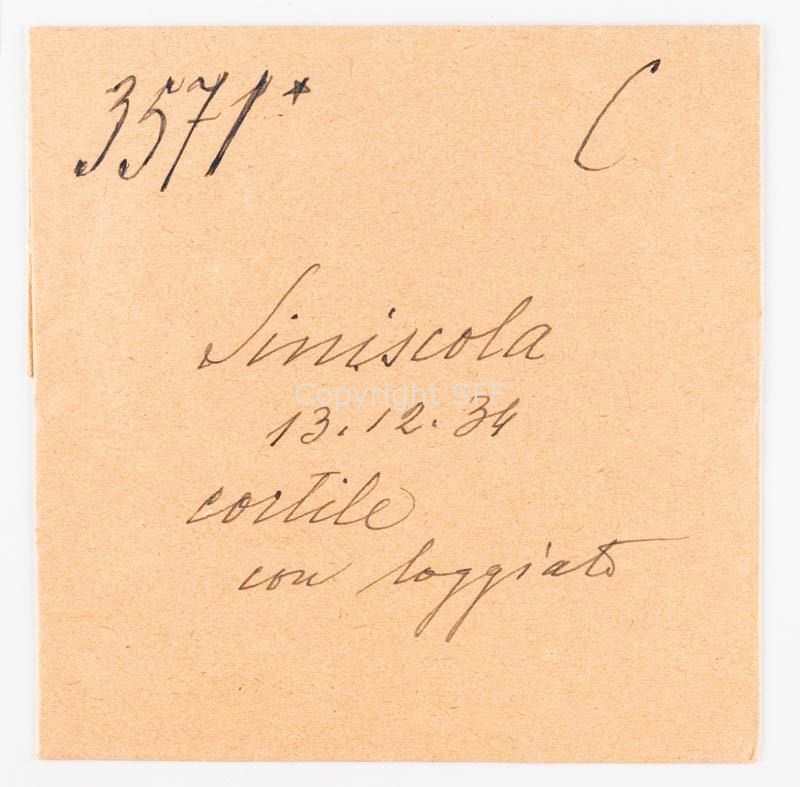 3571* C
Siniscola
Copyright SEF
13.12.34
cortile
con loggiato